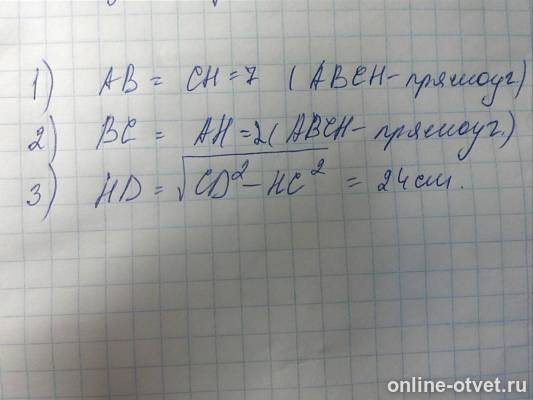 1) AB = CH = 7 (ABCH - прямоуг)
2) BC = AH = 2 (ABCH - прямоуг.)
3) HD = √CD² - HC² = 24 см.
online-otvet.ru